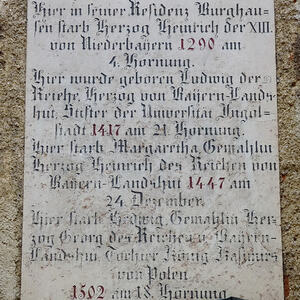 Hier in seiner Residenz Burghau-
sen starb Herzog Heinrich der XIII.
von Niederbayern 1290 am
4. Hornung.
Hier wurde geboren Ludwig der
Reiche, Herzog von Bayern-Lands-
hut, Stifter der Universität Ingol-
stadt 1417 am 21. Hornung.
Hier starb Margaretha, Gemahlin
Herzog Heinrich des Reichen von
Bayern-Landshut 1447 am
24. Dezember.
Hier starb Hedwig, Gemahlin Her-
zog Georg des Reichen v. Bayern-
Landshut, Tochter König Kasimirs
von Polen
1502 am 18. Hornung